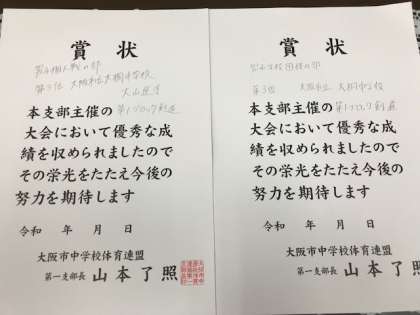 賞状
男子個人戦の部
第3位 大阪市立大桐中学校
本支部主催の第1ブロック剣道
大会において優秀な成
績を収められましたので
その栄光をたたえ今後の
努力を期待します
令和 年 月 日
大阪市中学校体育連盟
第一支部長 山本了照
賞状
団体の部
第3位 大阪市立 大桐中学校
本支部主催の第1ブロック剣道
大会において優秀な成
績を収められましたので
その栄光をたたえ今後の
努力を期待します
令和 年 月 日
大阪市中学校体育連盟
第一支部長 山本了照